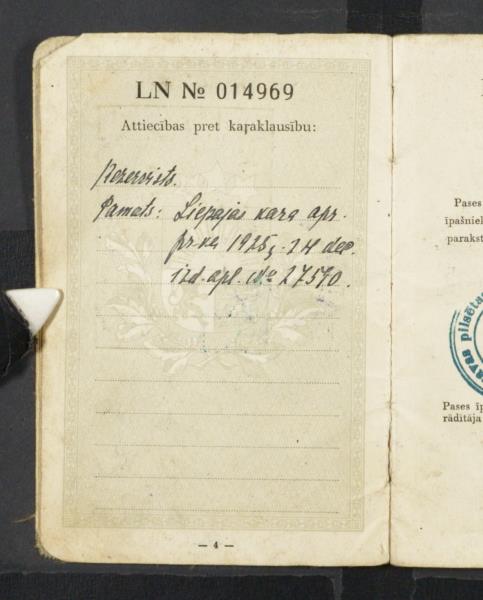 LN № 014969
Attiecības pret kaŗaklausību:
Rezervists.
Pamats: Liepājas kara apr.
pr-ka 1925 g. 24 dec.
izd. apl. № 27570.
— 4 —
Pases
īpašniek
parakst
pilsētas
Pases īp
rādītāja